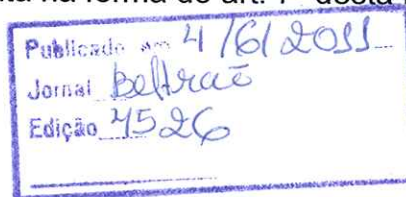 na forma do art. 7º desta
Publicado em 4/6/2011
Jornal Beltrão
Edição 4526